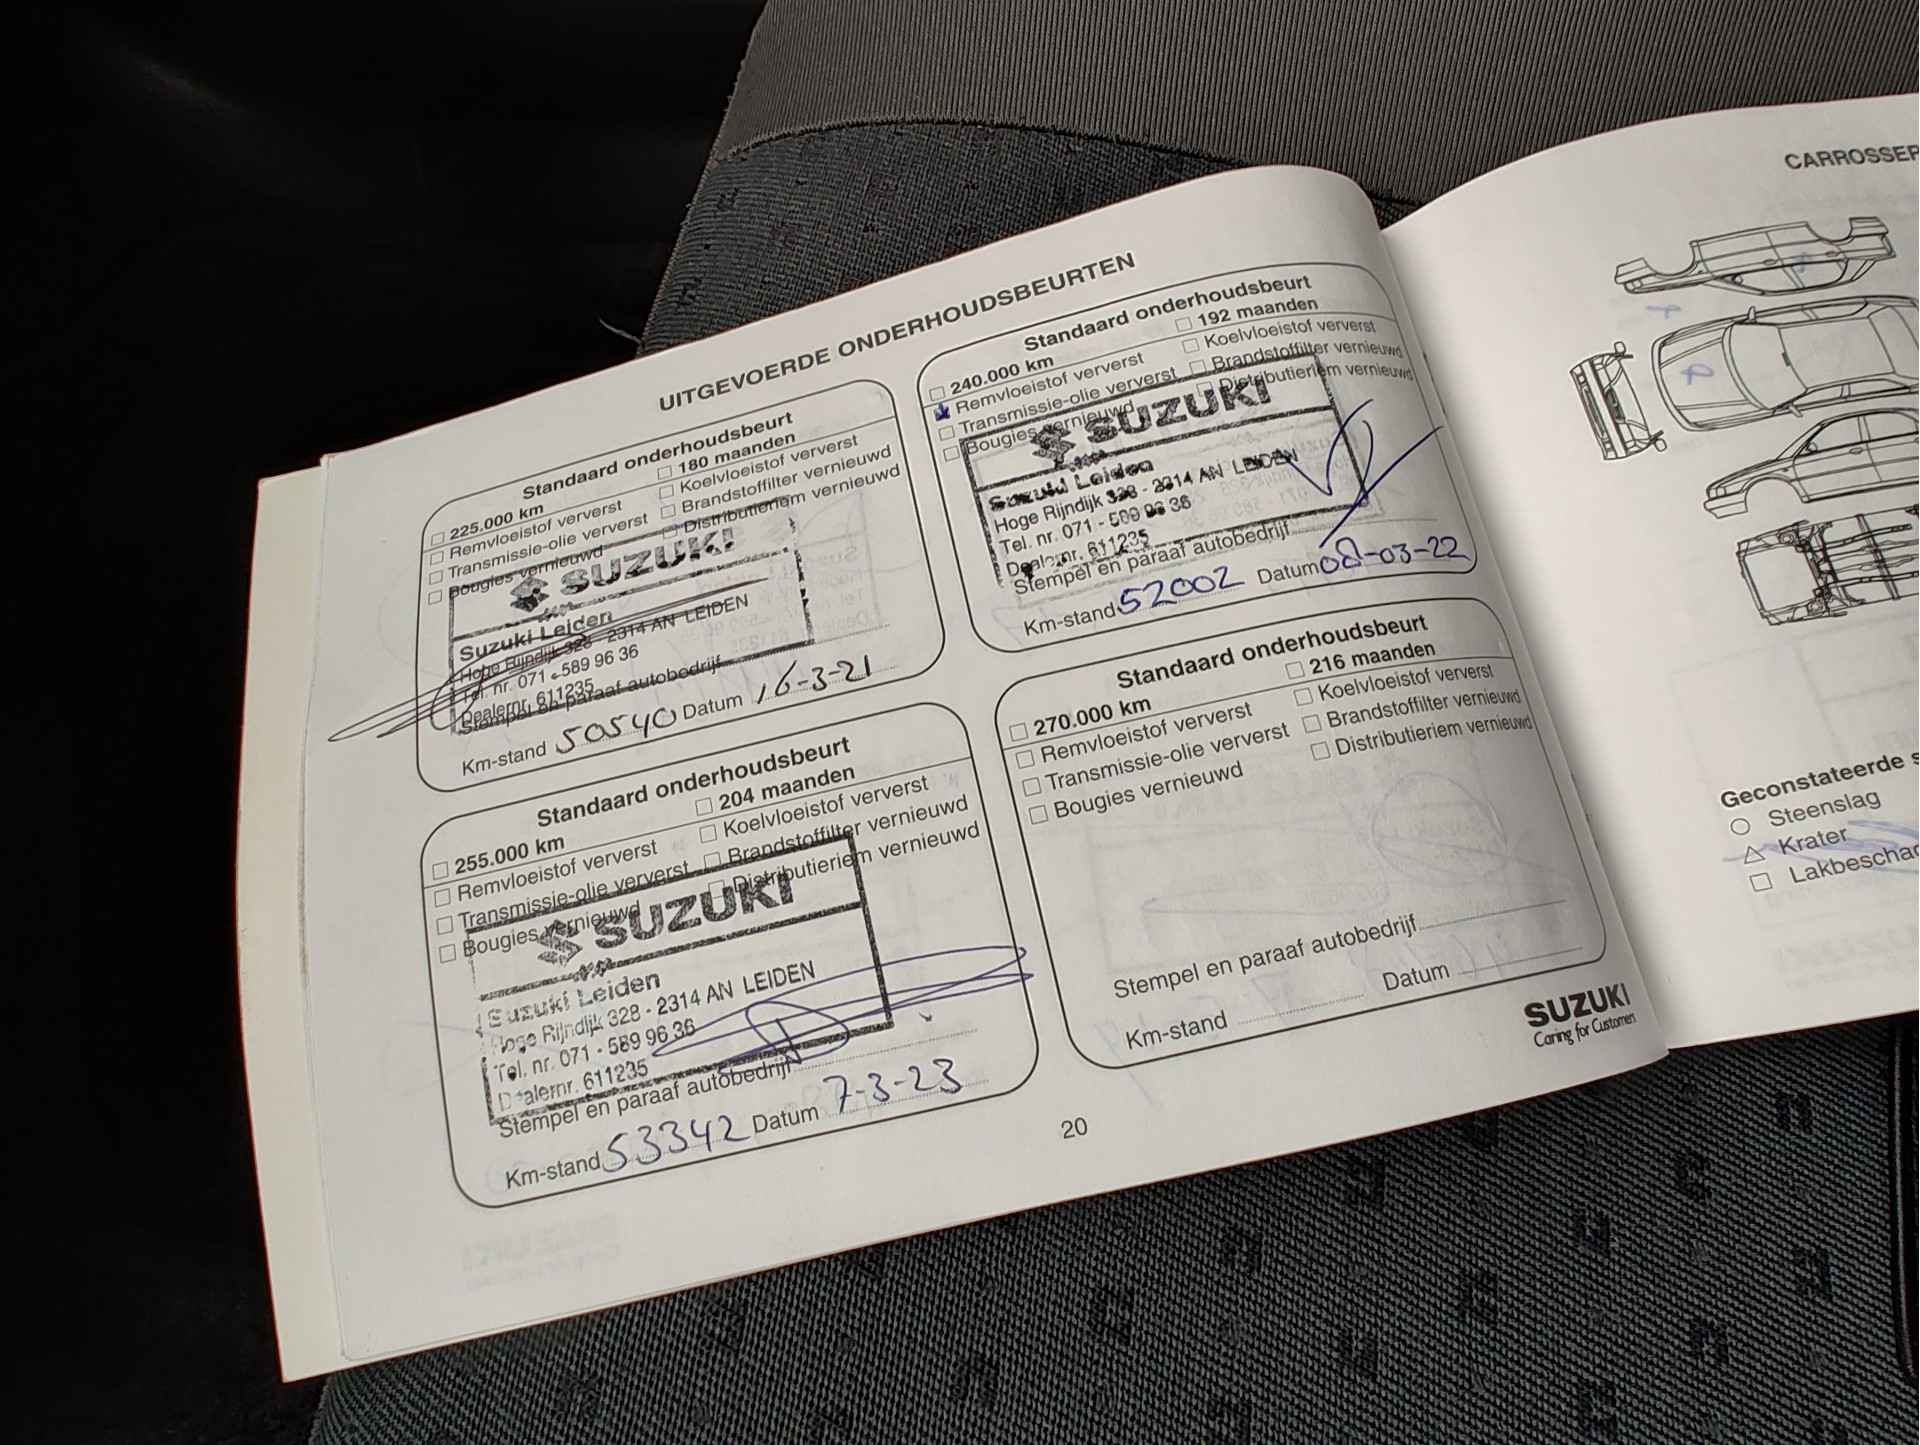 UITGEVOERDE ONDERHOUDSBEURTEN
Standaard onderhoudsbeurt
225.000 km
180 maanden
Remvloeistof ververst
Koelvloeistof ververst
Transmissie-olie ververst
Brandstoffilter vernieuwd
Bougies vernieuwd
Distributieriem vernieuwd
SUZUKI
Suzuki Leiden
Hoge Rijndijk 328 - 2314 AN LEIDEN
Tel. nr. 071 - 589 96 36
Dealernr. 611235
Stempel en paraaf autobedrijf
Km-stand 50540 Datum 16-3-21
Standaard onderhoudsbeurt
240.000 km
192 maanden
Remvloeistof ververst
Koelvloeistof ververst
Transmissie-olie ververst
Brandstoffilter vernieuwd
Bougies vernieuwd
Distributieriem vernieuwd
SUZUKI
Suzuki Leiden
Hoge Rijndijk 328 - 2314 AN LEIDEN
Tel. nr. 071 - 589 96 36
Dealernr. 611235
Stempel en paraaf autobedrijf
Km-stand 52002 Datum 08-03-22
Standaard onderhoudsbeurt
255.000 km
204 maanden
Remvloeistof ververst
Koelvloeistof ververst
Transmissie-olie ververst
Brandstoffilter vernieuwd
Bougies vernieuwd
Distributieriem vernieuwd
SUZUKI
Suzuki Leiden
Hoge Rijndijk 328 - 2314 AN LEIDEN
Tel. nr. 071 - 589 96 36
Dealernr. 611235
Stempel en paraaf autobedrijf
Km-stand 53342 Datum 7-3-23
Standaard onderhoudsbeurt
270.000 km
216 maanden
Remvloeistof ververst
Koelvloeistof ververst
Transmissie-olie ververst
Brandstoffilter vernieuwd
Bougies vernieuwd
Distributieriem vernieuwd
Stempel en paraaf autobedrijf
Km-stand Datum
SUZUKI
Caring for Customers
20
CARROSSER
Geconstateerde s
Steenslag
Krater
Lakbescha